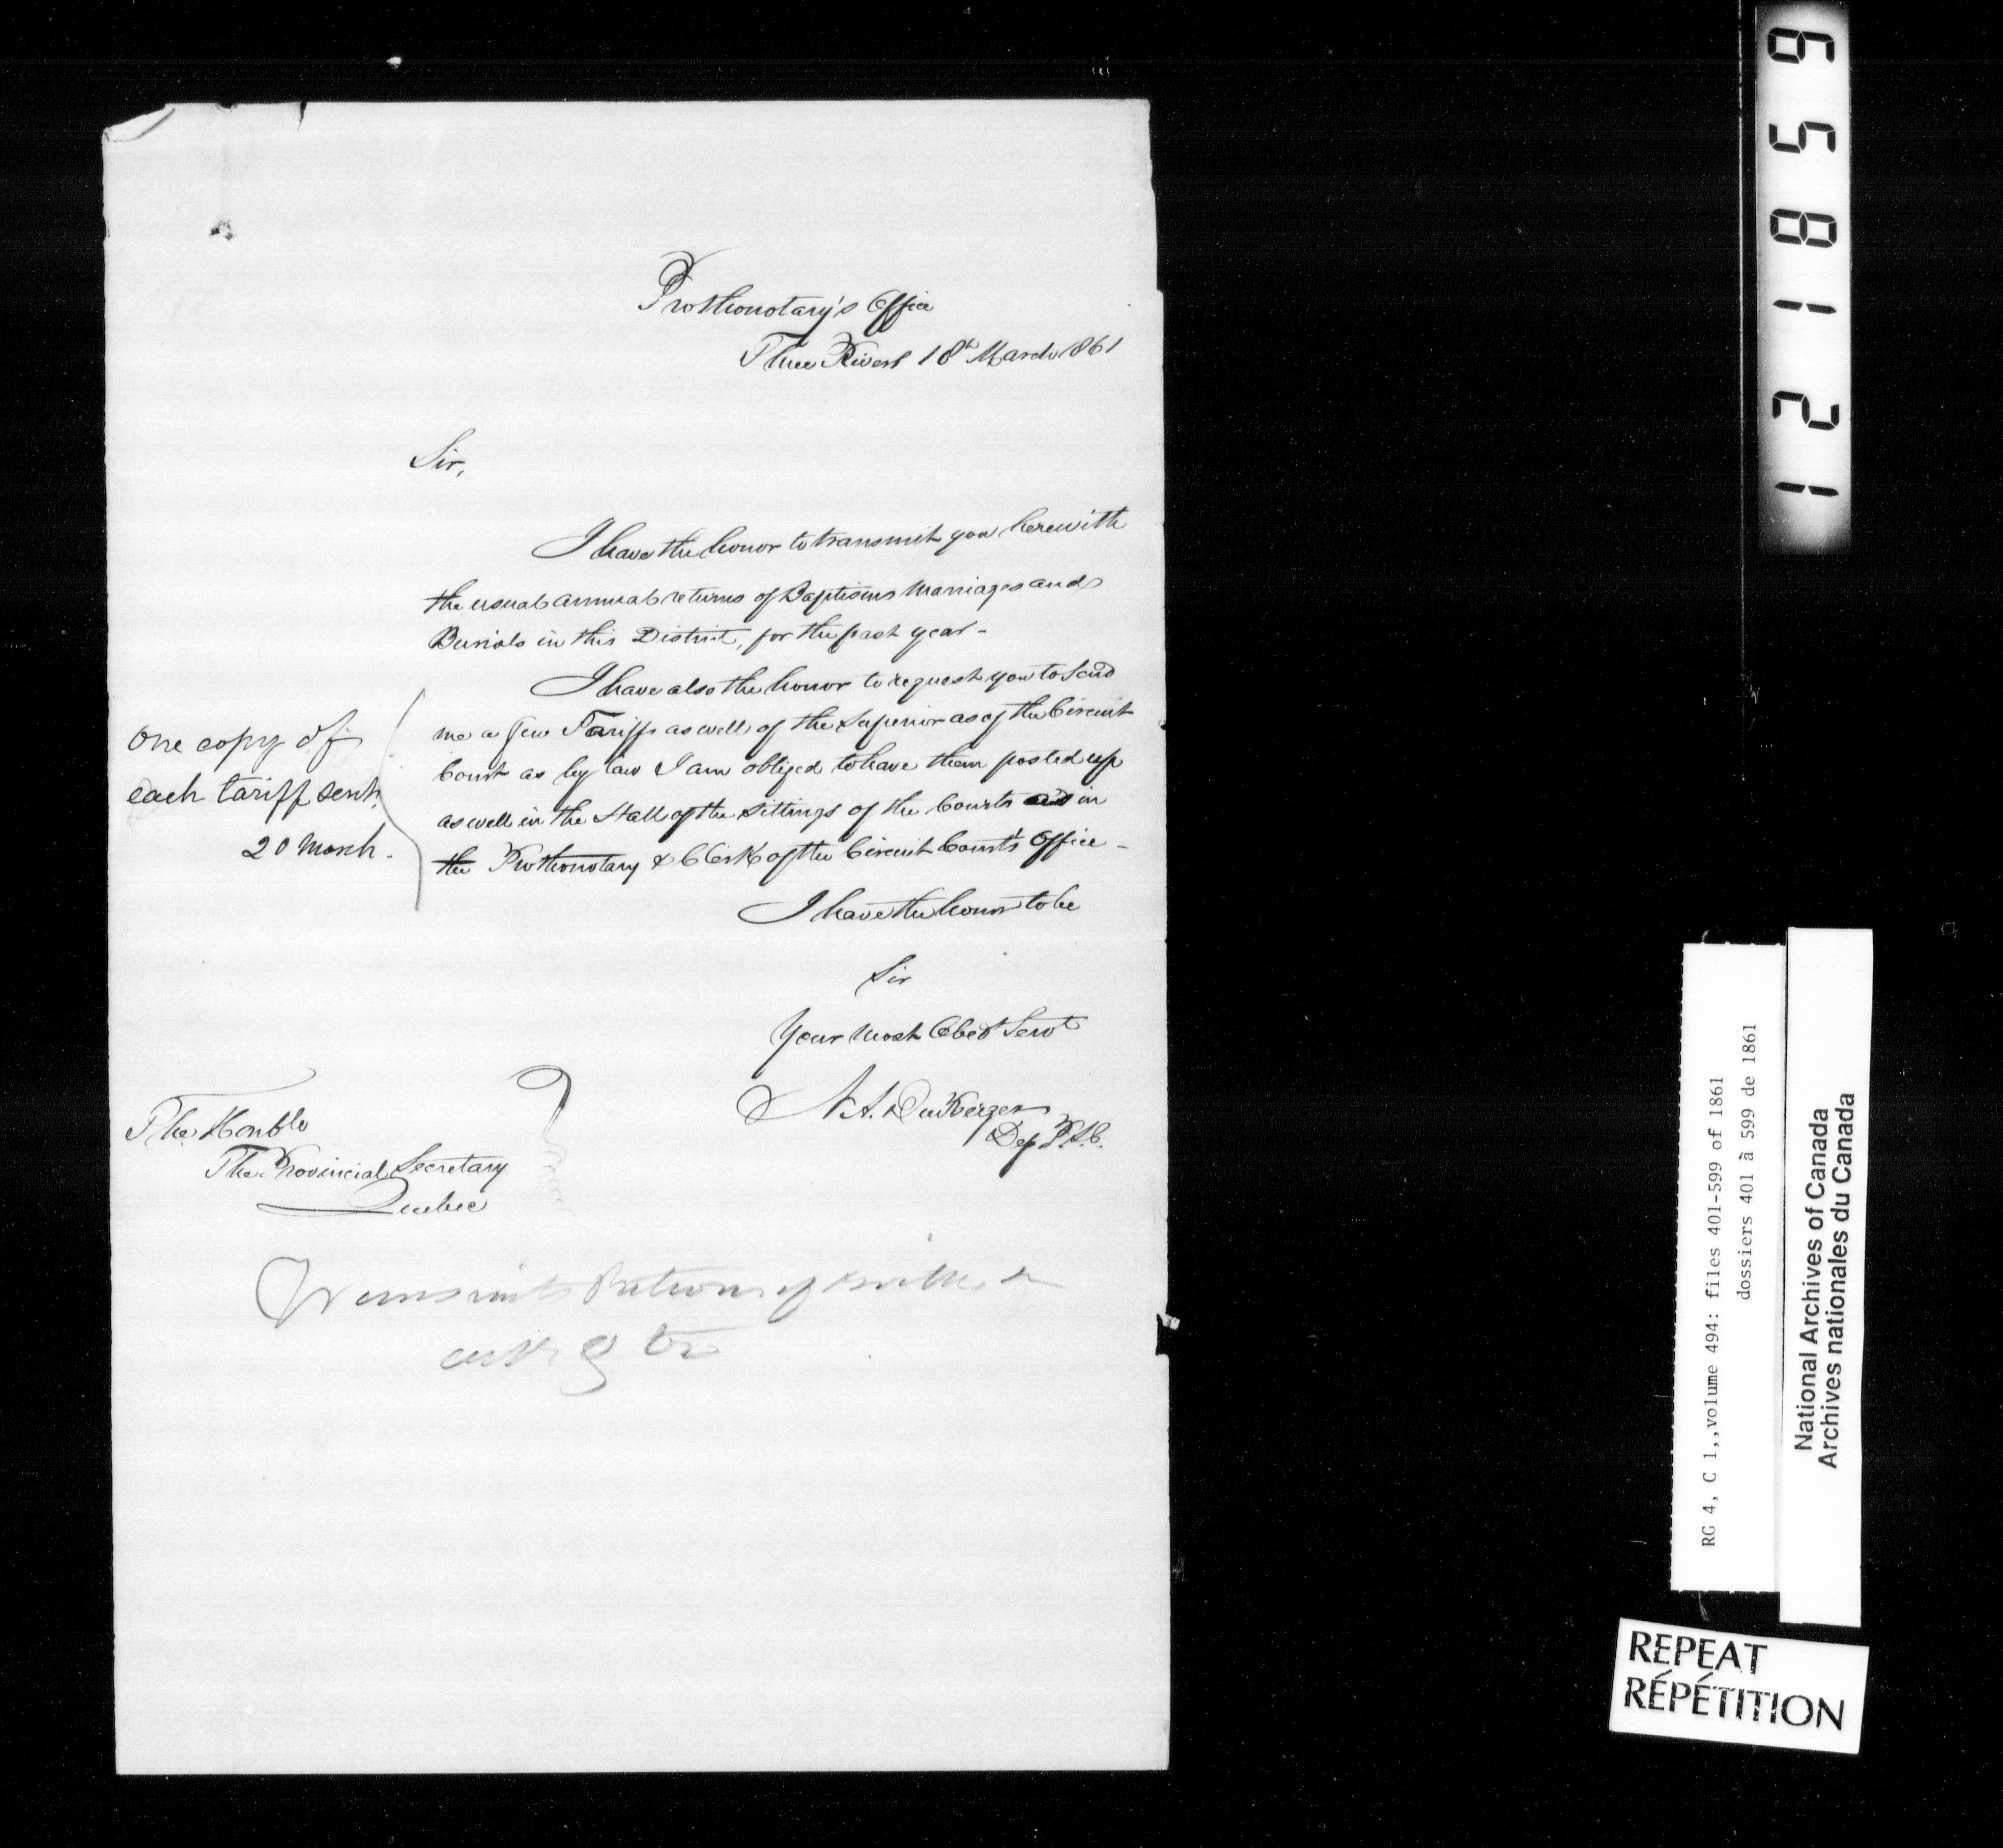 Prothonotary's Office
Three Rivers 18th March 1861
Sir,
I have the honor to transmit you herewith
the usual annual returns of Baptisms Marriages and
Burials in this District, for the past year -
I have also the honor to request you to send
me a few Tariffs as well of the Superior as of the Circuit
Court as by law I am obliged to have them posted up
as well in the Hall of the Sittings of the Courts as in
the Prothonotary & Clerk of the Circuit Court's Office -
One copy of
each tariff sent.
20 March.
I have the honor to be
Sir
Your most Obedt Servt
Dep P.S.C.
The Honble
The Provincial Secretary
Quebec
Transmits Return of
121859
RG 4, C 1,,volume 494: files 401-599 of 1861
dossiers 401 à 599 de 1861
National Archives of Canada
Archives nationales du Canada
REPEAT
RÉPÉTITION